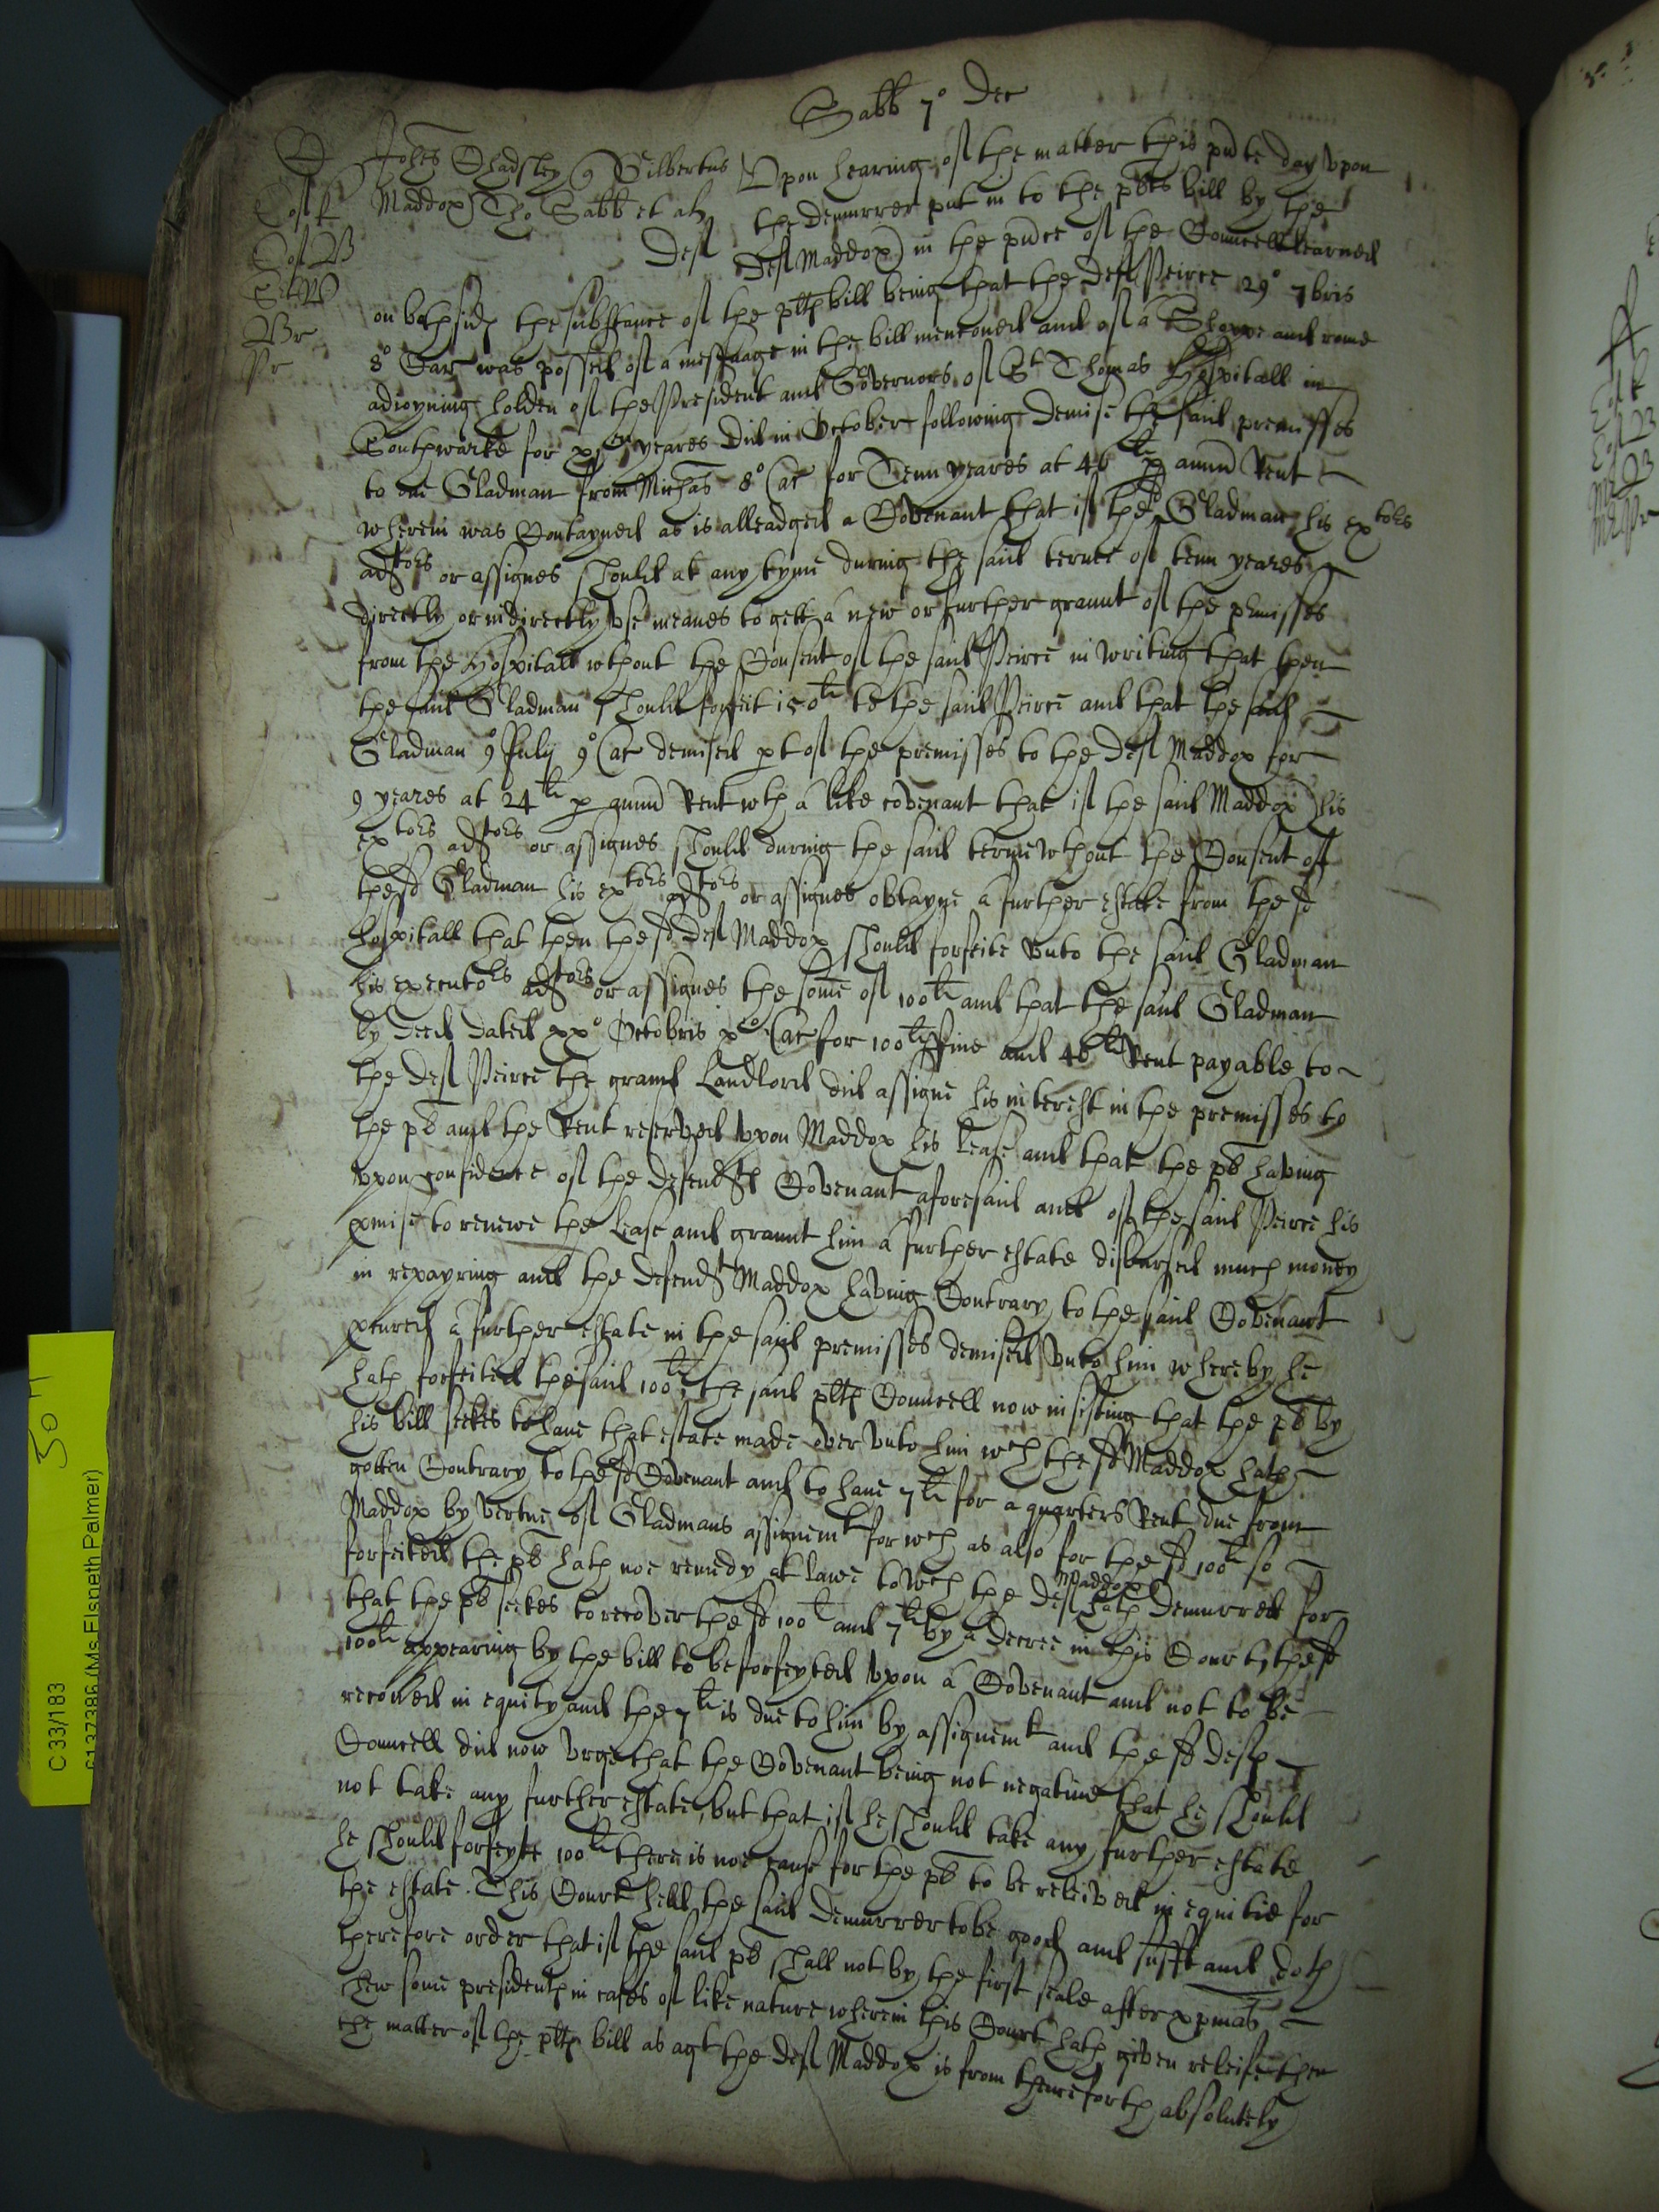 Sabb 7° Dec
Johes Chadsley q Gilbertus Upon hearing of the matter this pnte day upon
Maddox Tho Babb et al the demurrer put in to the plts bill by the
def def Maddox in the pnce of the Councell learned
on both sides the substance of the pltes bill being that the def Peirce 29° 7bris
8° Car was possest of a messuage in the bill menconed and of a Shoppe and rome
adioyning holden of the President and Governors of St Thomas Hospitall in
Southwarke for xxi yeares did in October following demise the said premisses
to one Gladman from Michas 8° Car for Tenn yeares at 46li p annu Rent
wherein was Contayned as is alleadged a Covenant that if the sd Gladman his extors
adtors or assignes should at any tyme during the said terme of tenn yeares
directly or indirectly use meanes to gett a new or further graunt of the pmisses
from the Hospitall wthout the Consent of the said Peirce in writing that then
the said Gladman should forfeit 150li to the said Peirce and that the said
Gladman 9° July 9° Car demised pt of the premisses to the def Maddox for
9 yeares at 24li p annu Rent wth a like covenant that if the said Maddox his
extors adtors or assignes should during the said terme wthout the Consent of
the sd Gladman his extors adtors or assignes obtayne a further estate from the sd
hospitall that then the sd def Maddox should forfeite unto the said Gladman
his executors adtors or assignes the some of 100li and that the said Gladman
by deed dated xx° Octobris x° Car for 100li Fine and 46li Rent payable to
the def Peirce the graund Landlord did assigne his interest in the premisses to
the plt and the Rent reserved upon Maddox his lease and that the plt having
upon confidence of the defendts Covenant aforesaid and of the said Peirce his
pmise to renewe the Lease and graunt him a further estate disbursed much money
in repayring and the defendt Maddox having Contrary to the said Covenant
pcured a further estate in the said premisses demised unto him whereby he
hath forfeited the said 100li, the said pltes Councell now insisting that the plt by
his bill seekes to have that estate made over unto him wch the sd Maddox hath
gotten Contrary to the sd Covenant and to have 7li for a quarters Rent due from
Maddox by vertue of Gladmans assignemt for wch as also for the sd 100li so
forfeited the plt hath noe remedy at lawe to wch the def Maddox hath demurred for
that the plt seekes to recover the sd 100li and 7li by a decree in this Court, the sd
100li appearing by the bill to be forfeyted upon a Covenant and not to be
recoved in equity and the 7li is due to him by assignemt and the sd defts
Councell did now urge that the Covenant being not negative that he should
not take any further estate, but that if he should take any further estate
he should forfeyte 100li there is noe cause for the plt to be releived in equitie for
the estate. This Court held the said demurrer to be good and sufft and doth
therefore order that if the said plt shall not by the first seale after xpmas
shew some presidents in cases of like nature wherein this Court hath given releife then
the matter of the pltes bill as agt the def Maddox is from thenceforth absolutely
C 33/183
(Ms Elspeth Palmer)